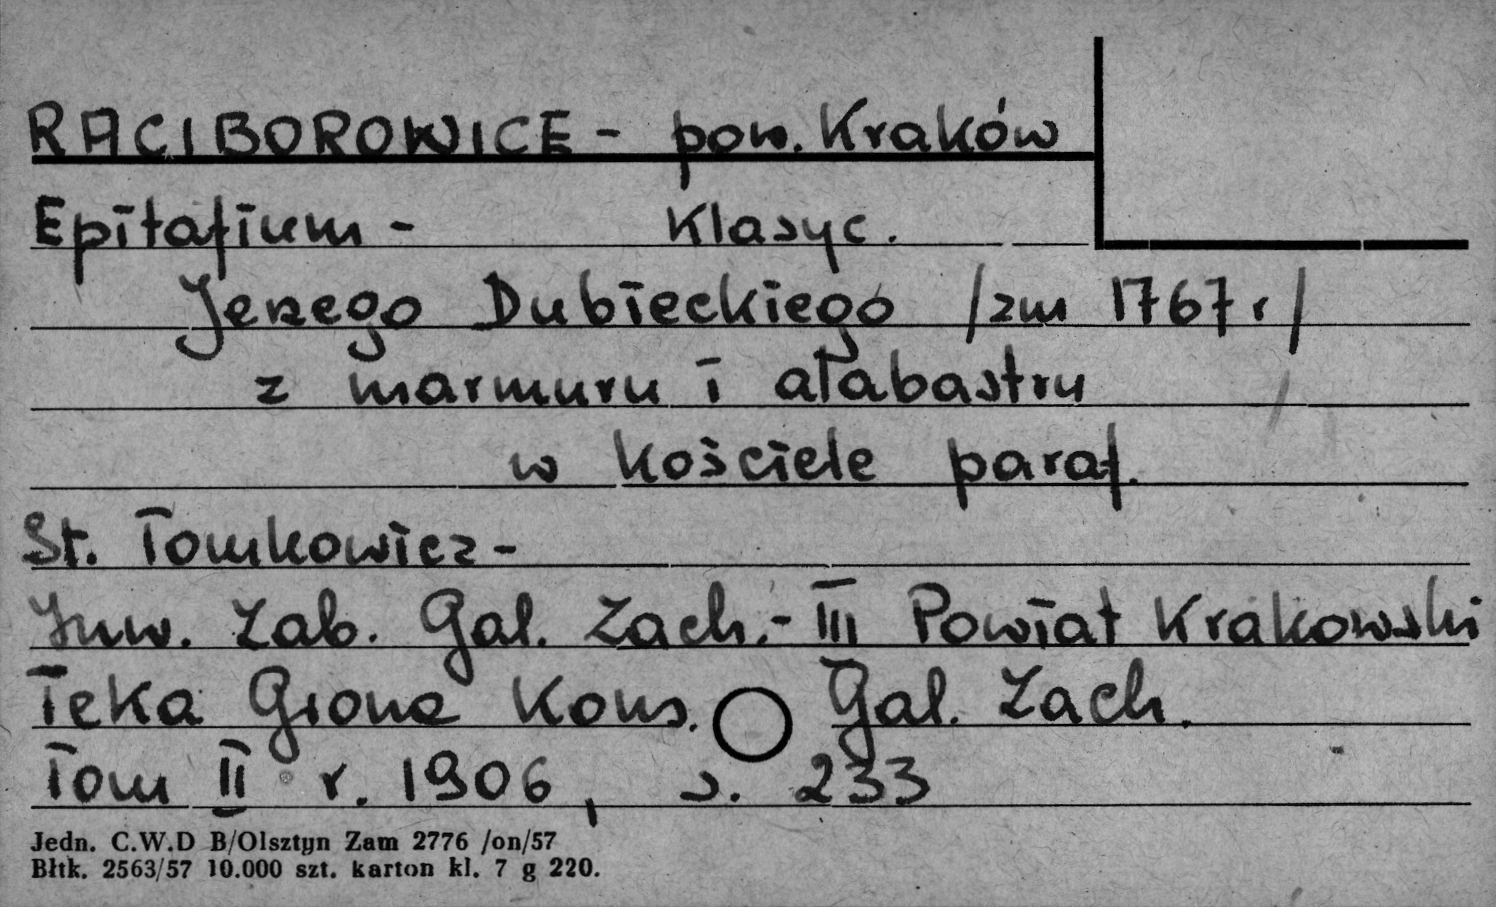 RACIBOROWICE - pow. Kraków
Epitafium - Klasyc.
Jerzego Dubieckiego /zm 1767 r/
z marmuru i alabastru
w kościele paraf.
St. Tomkowicz -
Inw. Zab. Gal. Zach. - III Powiat Krakowski
Teka Grona Kons. Gal. Zach.
Tom II r. 1906, s. 233
Jedn. C.W.D B/Olsztyn Zam 2776 /on/57
Błtk. 2563/57 10.000 szt. karton kl. 7 g 220.